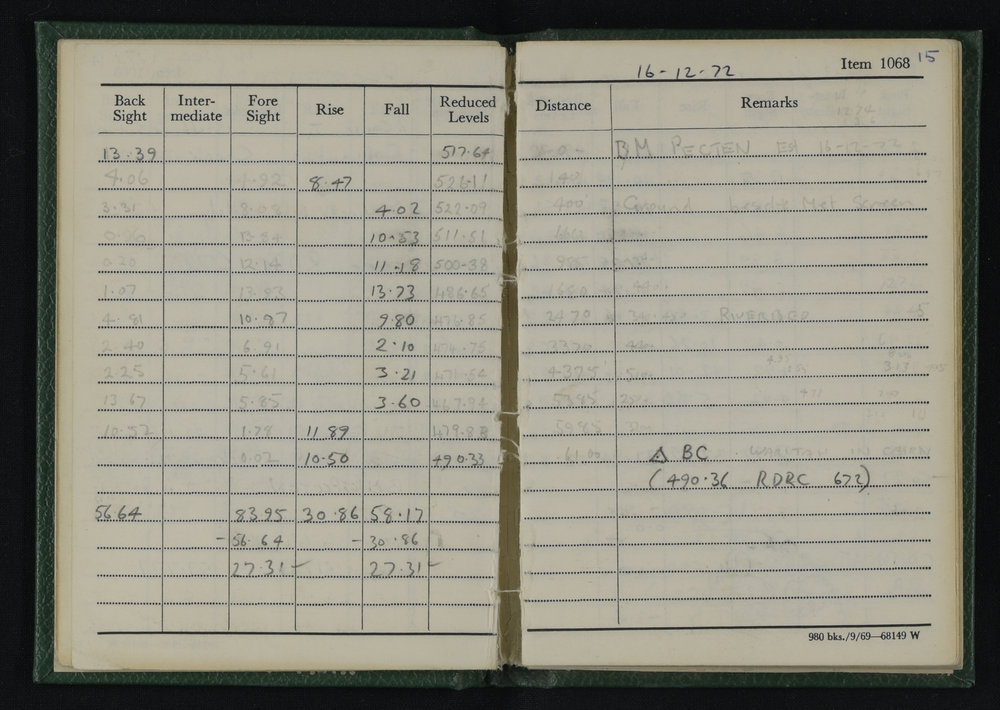 16-12-72 Item 1068 15
Back Sight Inter-mediate Fore Sight Rise Fall Reduced Levels Distance Remarks
13.39 517.64 BM PECTEN Est 16-12-72
4.06 4.92 8.47 526.11 140
3.31 8.08 4.02 522.09 400 Ground beside Met Screen
13.84 10.53 511.56
0.20 12.14 11.18 500.38 985
1.07 13.93 13.73 486.65 1680
4.81 10.87 9.80 476.85 2470 RIVERBED
2.40 6.91 2.10 474.75 3370
2.25 5.61 3.21 471.54 4375
13.67 5.85 3.60 467.94
10.52 1.78 11.89 479.83 5985
0.02 10.50 490.33 6100 Δ BC
(490.36 RDRC 672)
56.64 83.95 30.86 58.17
- 56.64 - 30.86
27.31 27.31
980 bks./9/69—68149 W